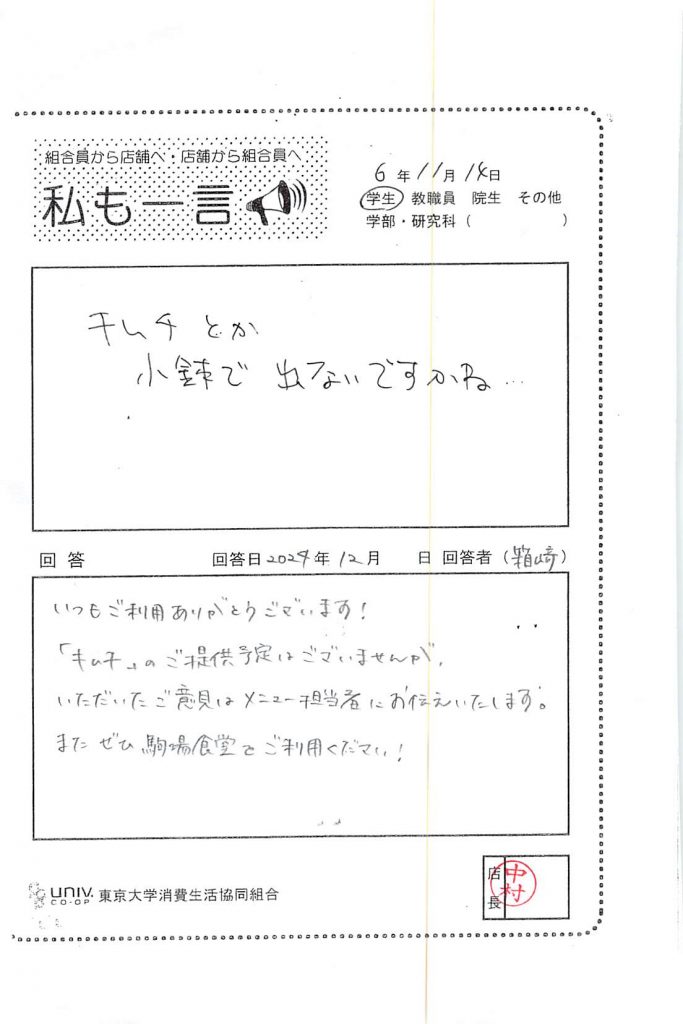 組合員から店舗へ・店舗から組合員へ
私も一言
6年11月14日
学生 教職員 院生 その他
学部・研究科( )
キムチとか
小鉢で出ないですかね…
回答 回答日2024年12月 日 回答者(箱崎)
いつもご利用ありがとうございます!
「キムチ」のご提供予定はございませんが、
いただいたご意見はメニュー担当者にお伝えいたします。
またぜひ駒場食堂をご利用ください!
UNIV. CO-OP 東京大学消費生活協同組合
店長
中村